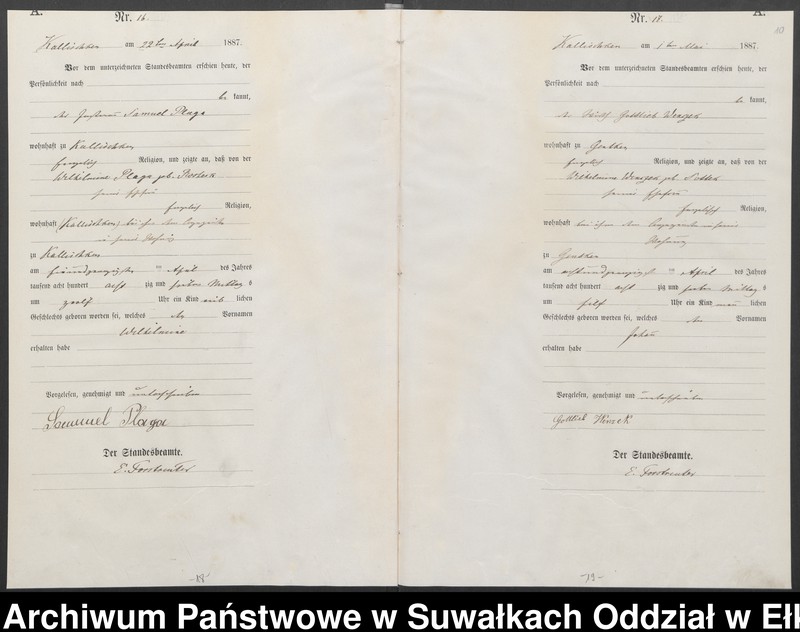 A.
Nr. 16.
Kallischken am 22ten April 1887.
Vor dem unterzeichneten Standesbeamten erschien heute, der
Persönlichkeit nach
be kannt,
der Samuel Plaga
wohnhaft zu Kallischken
evangelisch Religion, und zeigte an, daß von der
Wilhelmine Plaga geb.
seiner Ehefrau
evangelisch Religion,
wohnhaft Kallischken bei ihm
in seiner Wohnung
zu Kallischken
am einundzwanzigsten ten April des Jahres
tausend acht hundert acht zig und sieben Mittag s
um zwölf Uhr ein Kind weib lichen
Geschlechts geboren worden sei, welches den Vornamen
Wilhelmine
erhalten habe
Vorgelesen, genehmigt und unterschrieben
Samuel Plaga
Der Standesbeamte.
-18-
A.
10
Nr. 18.
Kallischken am 1ten Mai 1887.
Vor dem unterzeichneten Standesbeamten erschien heute, der
Persönlichkeit nach
be kannt,
der Gottlieb
wohnhaft zu
evangelisch Religion, und zeigte an, daß von der
Wilhelmine geb.
seiner Ehefrau
evangelisch Religion,
wohnhaft bei ihm in seiner
Wohnung
zu
am achtundzwanzigsten ten April des Jahres
tausend acht hundert acht zig und sieben Mittag s
um Uhr ein Kind männ lichen
Geschlechts geboren worden sei, welches den Vornamen
Johann
erhalten habe
Vorgelesen, genehmigt und unterschrieben
Gottlieb
Der Standesbeamte.
-19-
Archiwum Państwowe w Suwałkach Oddział w Ełk